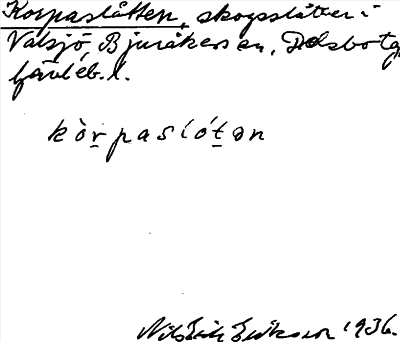 Korpaslåtten, skogsslåtter i
Valsjö, Bjuråkers sn, Delsbo tg,
Gävleb. l.
kòrpaslótən
Nils Erik Eriksson 1936.